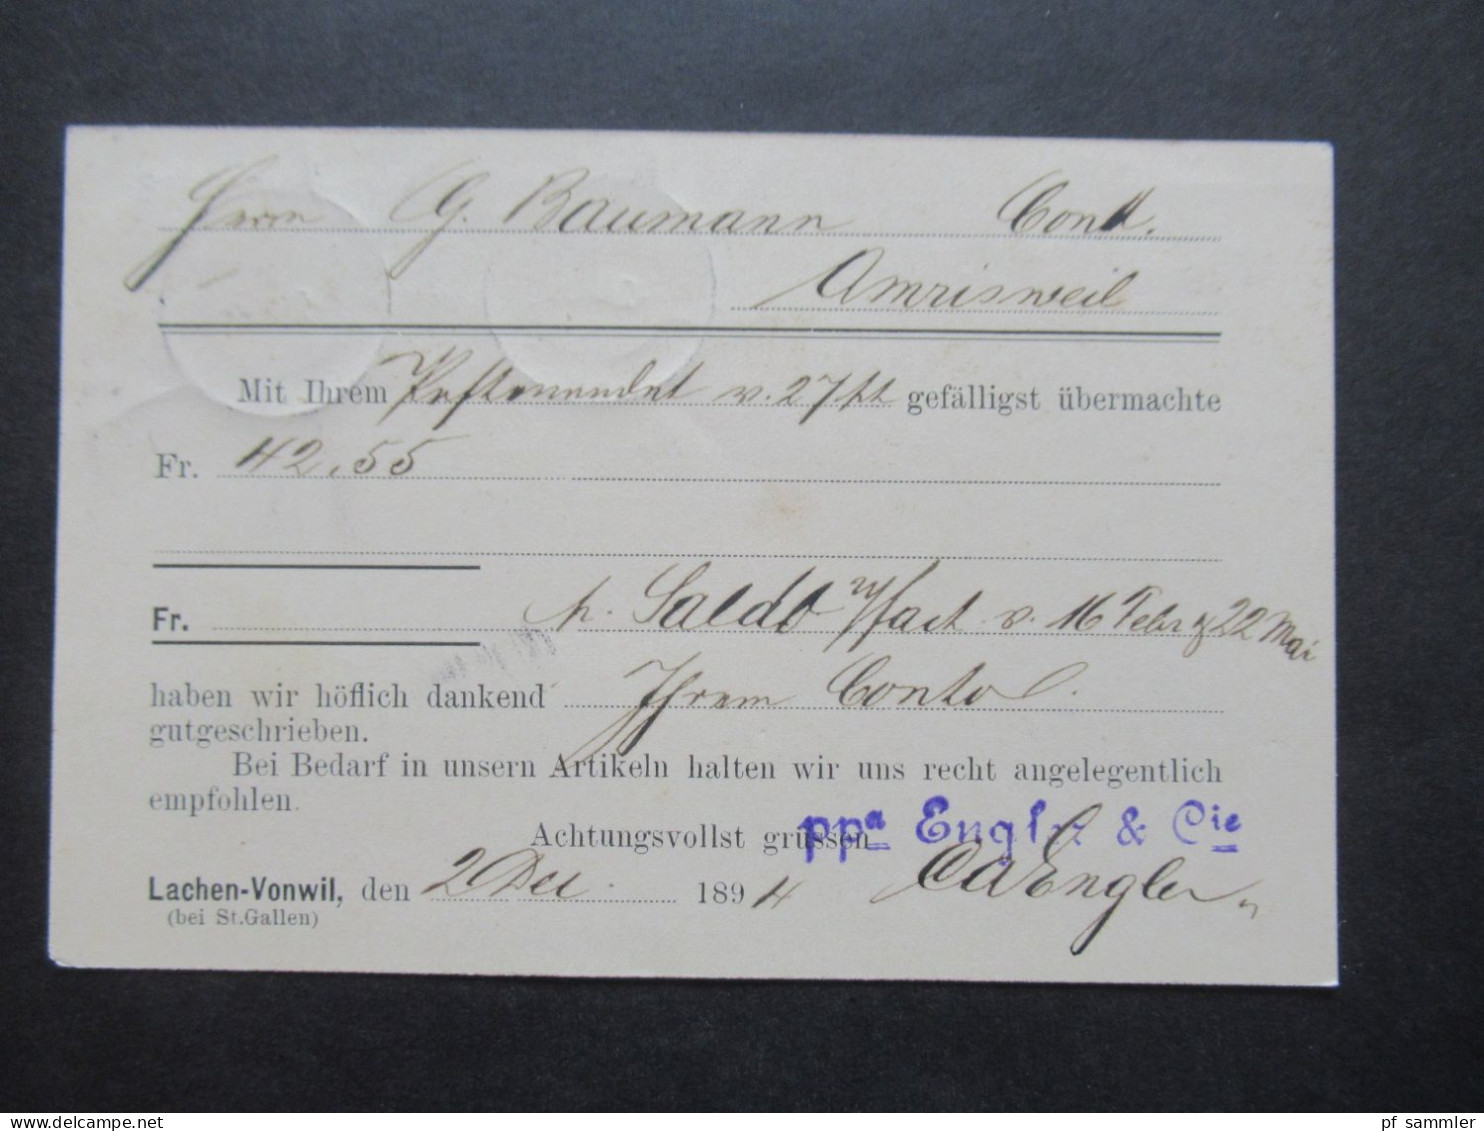 Herrn G. Baumann Cond.
Amrisweil
Mit Ihrem Postmandat v. 27/11 gefälligst übermachte
Fr. 42.55
Fr. Saldo v. 16 Febr & 22 Mai
haben wir höflich dankend Ihrem Conto
gutgeschrieben.
Bei Bedarf in unsern Artikeln halten wir uns recht angelegentlich
empfohlen.
Achtungsvollst grüssen
ppa Engler & Cie
Lachen-Vonwil, den 2 Dec. 1894 Engler
(bei St. Gallen)
pf sammler